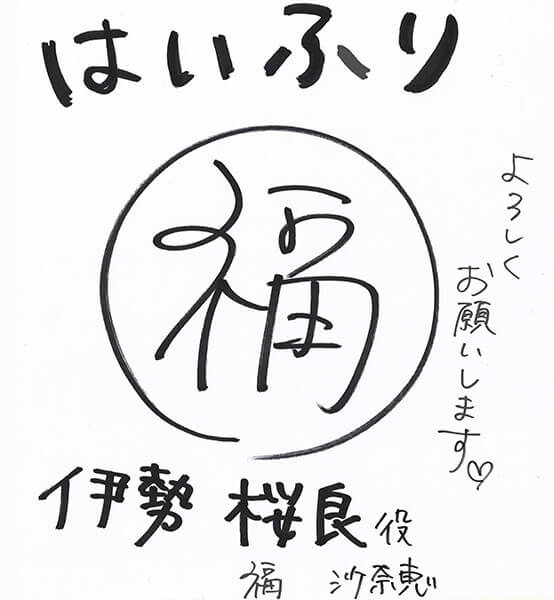 はいふり
福
よろしく
お願いします♡
伊勢 桜良役
福 沙奈恵